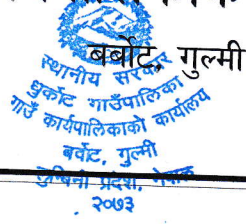 बर्बोट, गुल्मी
स्थानीय सरकार
धुर्कोट गाउँपालिका
गाउँ कार्यपालिकाको कार्यालय
बर्वोट, गुल्मी
लुम्बिनी प्रदेश, नेपाल
२०७३